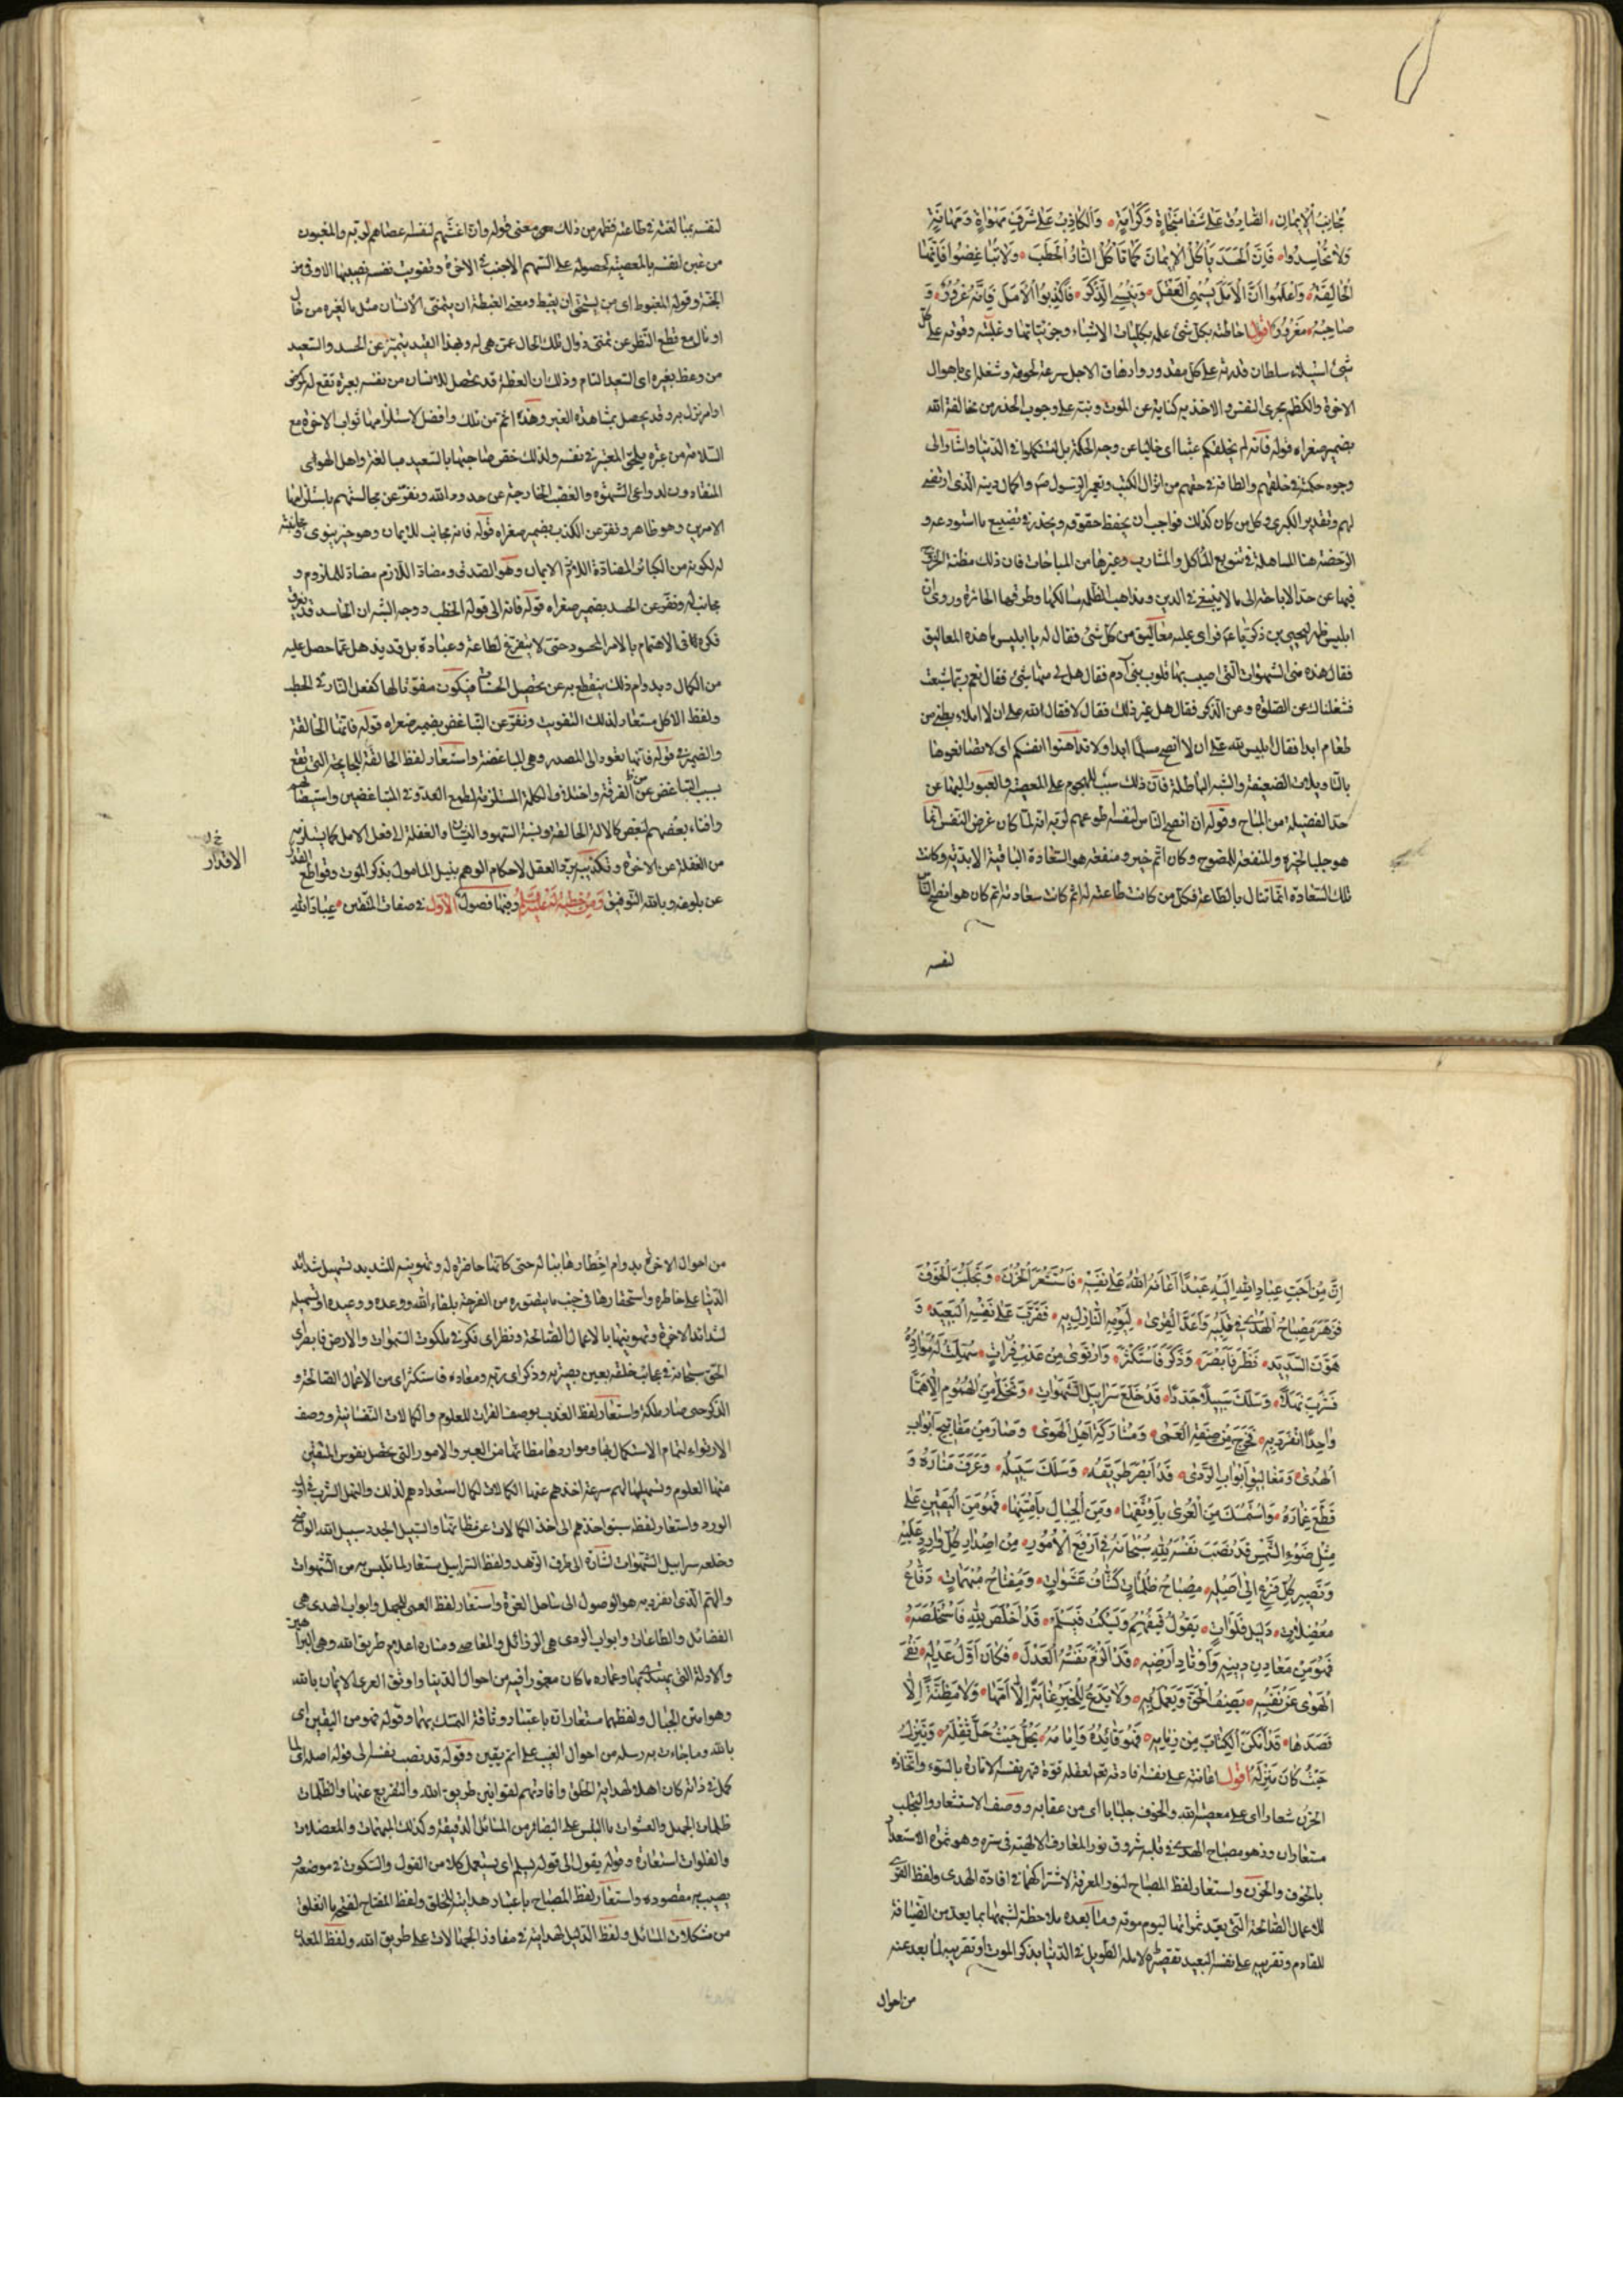 مُجَانِبُ الْاِيمَانِ الصَّادِقُ عَلَى شَفَا مَنْجَاةٍ وَكَرَامَةٍ وَالْكَاذِبُ عَلَى شَرَفِ مَهْوَاةٍ وَمَهَانَةٍ
وَلَا تَحَاسَدُوا فَاِنَّ الْحَسَدَ يَأْكُلُ الْاِيمَانَ كَمَا تَأْكُلُ النَّارُ الْحَطَبَ وَلَا تَبَاغَضُوا فَاِنَّهَا
الْحَالِقَةُ وَاعْلَمُوا اَنَّ الْاَمَلَ يُسْهِي الْعَقْلَ وَيُنْسِي الذِّكْرَ فَاَكْذِبُوا الْاَمَلَ فَاِنَّهُ غُرُورٌ وَ
صَاحِبُهُ مَغْرُورٌ اقول احاطته بكل شئ علمه بكليات الاشياء وجزئياتها وغلبته وقوته على كل
شئ استيلاء سلطان قدرته على كل مقدور وارهاق الاجل سرعة لحوقه وشغله اى باهوال
الاخرة والكظم مجرى النفس والاخذ به كناية عن الموت ونبه على وجوب الحذر من مخالفة الله
بضمير صغراه قوله فانه لم يخلقكم عبثا اى خاليا عن وجه الحكمة بل لتستكملوا فى الدنيا واشار الى
وجوه حكمته فى خلقهم والطافه فى حقهم من انزال الكتب وتعمير الرسول ص واكمال دينه الذى ارتضى
لهم وتقدير الكبرى وكل من كان كذلك فواجب ان يحفظ حقوقه ويحذر فى تضييع ما استودعه و
الرخصة هنا المساهلة فى تنويع المآكل والمشارب وغيرها من المباحات فان ذلك مظنة الخروج
فيها عن حد الاباحة الى ما لا ينبغى فى الدين ومذاهب الظلمة مسالكها وطرقها الجائرة وروى ان
ابليس ظهر ليحيى بن ذكريا ع م فراى عليه معاليق من كل شئ فقال له يا ابليس ما هذه المعاليق
فقال هذه من الشهوات التى اصيب بها قلوب بنى آدم فقال هل لى منها شئ فقال نعم ربما شبعت
فشغلناك عن الصلوة وعن الذكر فقال هل غير ذلك فقال لا فقال لله على ان لا املاء بطنى من
طعام ابدا فقال ابليس لله على ان لا انصح مسلما ابدا ولا تداهنوا انفسكم اى لا تصانعوها
بالتاويلات الضعيفة والشبه الباطلة فان ذلك سبب للهجوم على المعصية والعبور اليها عن
حد الفضيلة من المباح وقوله ان انصح الناس لنفسه اطوعهم لربه انه لما كان غرض النفس انما
هو جلب الخير والمنفعة للمنصوح وكان اتم خير ومنفعة هو السعادة الباقية الابدية وكانت
تلك السعادة انما تنال بالطاعة فكل من كانت طاعته لله اتم كانت سعادته اتم كان هو انصح الناس
لنفسه
لنفسه بمبالغته فى طاعته فظهر من ذلك معنى قوله وان اغشهم لنفسه اعصاهم لربه والمغبون
من غبن لنفسه بالمعصية لحصوله على السهم الاخيب فى الاخرة وتفويت نفسه نصيبها الاوفى من
الجنة وقوله المغبوط اى من يستحق ان يغبط ومعنى الغبطة ان يتمنى الانسان مثل ما لغيره من حال
او مال مع قطع النظر عن تمنى زوال تلك الحال عمن هى له وبهذا القيد يتميز عن الحسد والسعيد
من وعظ بغيره اى السعيد التام وذلك ان العظة قد تحصل للانسان من نفسه بعبرة تقع له كمرض
او امر نزل به وقد يحصل بمشاهدة الغير وهذه اتم من تلك وافضل لاستلزامها ثواب الاخرة مع
السلامة من عبرة يلحق المعتبر فى نفسه ولذلك خص صاحبها بالسعيد مبالغة واهل الهوى
المنقادون لدواعى الشهوة والغضب الخارجة عن حدود الله ونفر عن مجالستهم باستلزامها
الامرين وهو ظاهر ونفر عن الكذب بضمير صغراه قوله فانه مجانب للايمان وهو خبر نبوى ومجانبته
له لكونه من الكبائر المضادة اللازم الايمان وهو الصدق ومضاد اللازم مضاد للملزوم و
مجانب له ونفر عن الحسد بضمير صغراه قوله فانه الى قوله الحطب ووجه الشبه ان الحاسد قد يغرق
فكره فى الاهتمام بالامر المحسود حتى لا يتفرغ لطاعة وعبادة بل قد يذهل عما حصل عليه
من الكمال وبدوام ذلك ينقطع به عن تحصيل الحسنات فيكون مفوتا لها كفعل النار فى الحطب
ولفظ الاكل مستعار لذلك التفويت ونفر عن التباغض بضمير صغراه قوله فانها الحالقة
والضمير فى قوله فانها تعود الى المصدر وهى المباغضة واستعار لفظ الحالقة للجايحة التى تقع
بسبب التباغض عن الفرقة واختلاف الكلمة المستلزمة لطمع العدو فى المتباغضين واستيصالهم
وافناء بعضهم لبعض كالالة الحالقة ونسبة السهو والنسيان والغفلة الى فعل الامل لما يستلزمه
من الغفلة عن الاخرة وتكذيبه برد العقل لاحكام الوهم بنيل المامول بذكر الموت وقواطع القدر
عن بلوغه وبالله التوفيق وَمِنْ خُطْبَةٍ لَهُ عَلَيْهِ السَّلَامُ وفيها فصول الاول فى صفات المتقين عِبَادَ اللهِ
خ ل
الاقدار
اِنَّ مِنْ اَحَبِّ عِبَادِ اللهِ اِلَيْهِ عَبْدًا اَعَانَهُ اللهُ عَلَى نَفْسِهِ فَاسْتَشْعَرَ الْحُزْنَ وَتَجَلْبَبَ الْخَوْفَ
فَزَهَرَ مِصْبَاحُ الْهُدَى فِي قَلْبِهِ وَاَعَدَّ الْقِرَى لِيَوْمِهِ النَّازِلِ بِهِ فَقَرَّبَ عَلَى نَفْسِهِ الْبَعِيدَ وَ
هَوَّنَ الشَّدِيدَ نَظَرَ فَاَبْصَرَ وَذَكَرَ فَاسْتَكْثَرَ وَارْتَوَى مِنْ عَذْبٍ فُرَاتٍ سُهِّلَتْ لَهُ مَوَارِدُهُ
فَشَرِبَ نَهَلًا وَسَلَكَ سَبِيلًا جَدَدًا قَدْ خَلَعَ سَرَابِيلَ الشَّهَوَاتِ وَتَخَلَّى مِنَ الْهُمُومِ اِلَّا هَمًّا
وَاحِدًا انْفَرَدَ بِهِ فَخَرَجَ مِنْ صِفَةِ الْعَمَى وَمُشَارَكَةِ اَهْلِ الْهَوَى وَصَارَ مِنْ مَفَاتِيحِ اَبْوَابِ
الْهُدَى وَمَغَالِيقِ اَبْوَابِ الرَّدَى قَدْ اَبْصَرَ طَرِيقَهُ وَسَلَكَ سَبِيلَهُ وَعَرَفَ مَنَارَهُ وَ
قَطَعَ غِمَارَهُ وَاسْتَمْسَكَ مِنَ الْعُرَى بِاَوْثَقِهَا وَمِنَ الْجِبَالِ بِاَمْتَنِهَا فَهُوَ مِنَ الْيَقِينِ عَلَى
مِثْلِ ضَوْءِ الشَّمْسِ قَدْ نَصَبَ نَفْسَهُ لِلهِ سُبْحَانَهُ فِي اَرْفَعِ الْاُمُورِ مِنْ اِصْدَارِ كُلِّ وَارِدٍ عَلَيْهِ
وَتَصْيِيرِ كُلِّ فَرْعٍ اِلَى اَصْلِهِ مِصْبَاحُ ظُلُمَاتٍ كَشَّافُ عَشَوَاتٍ وَمِفْتَاحُ مُبْهَمَاتٍ دَفَّاعُ
مُعْضِلَاتٍ دَلِيلُ فَلَوَاتٍ يَقُولُ فَيُفْهِمُ وَيَسْكُتُ فَيَسْلَمُ قَدْ اَخْلَصَ لِلهِ فَاسْتَخْلَصَهُ
فَهُوَ مِنْ مَعَادِنِ دِينِهِ وَاَوْتَادِ اَرْضِهِ قَدْ اَلْزَمَ نَفْسَهُ الْعَدْلَ فَكَانَ اَوَّلُ عَدْلِهِ نَفْيَ
الْهَوَى عَنْ نَفْسِهِ يَصِفُ الْحَقَّ وَيَعْمَلُ بِهِ وَلَا يَدَعُ لِلْخَيْرِ غَايَةً اِلَّا اَمَّهَا وَلَا مَظِنَّةً اِلَّا
قَصَدَهَا قَدْ اَمْكَنَ الْكِتَابَ مِنْ زِمَامِهِ فَهُوَ قَائِدُهُ وَاِمَامُهُ يَحُلُّ حَيْثُ حَلَّ ثَقَلُهُ وَيَنْزِلُ
حَيْثُ كَانَ مَنْزِلُهُ اقول اعانته على نفسه افادته لعقله قوة قهر نفسه الامارة بالسوء واتخاذه
الحزن شعارا اى على معصية الله والخوف جلبابا اى من عقابه ووصف الاستشعار والتجلبب
مستعاران وزهو مصباح الهدى فى قلبه شروق نور المعارف الالهية فى سره وهو ثمرة الاستعداد
بالخوف والحزن واستعار لفظ المصباح لنور المعرفة لاشتراكهما فى افادة الهدى ولفظ القرى
للاعمال الصالحة التى يعد ثمراتها ليوم موته وما بعده ملاحظة لشبهها بما يعد من الضيافة
للقادم وتقريبه على نفسه البعيد تقصيره لامله الطويل فى الدنيا بذكر الموت او تقريبه لما بعد عنه
من احوال
من احوال الاخرة بدوام اخطارها بباله حتى كانها حاضرة له وتهوينه للشديد تسهيل شدائد
الدنيا على خاطره واستحقارها فى جنب ما يتصوره من الفرحة بلقاء الله ووعده ووعيده او تسهيله
لشدائد الاخرة وتهوينها بالاعمال الصالحة ونظر اى فكر فى ملكوت السموات والارض فابصر اى
الحق سبحانه فى عجائب خلقه بعين بصيرته وذكر اى ربه ومعاده فاستكثر اى من الاعمال الصالحة و
الذكر حتى صار ملكة واستعار لفظ العذب بوصف الفرات للعلوم والكمالات النفسانية ووصف
الارتواء لتمام الاستكمال بها ومواردها مظانها من العبر والامور التى يحصل بنفوس المتقين
منها العلوم وتسهيلها لهم سرعة اخذهم عنها الكمالات لكمال استعدادهم لذلك والنهل الشرب فى اول
الورد واستعار لفظه لسبق اخذهم الى اخذ الكمالات عن مظانها والسبيل الجدد سبيل الله الواضح
وخلعه سرابيل الشهوات اشارة الى طرف الزهد ولفظ السرابيل مستعار لما تلبس به من الشهوات
والهم الذى انفرد به هو الوصول الى ساحل العزة واستعار لفظ العمى للجهل وابواب الهدى هى
الفضائل والطاعات وابواب الردى هى الرذائل والمعاصى ومناره اعلام طريق الله وهى البراهين
والادلة التى يستمسك بها وغماره ما كان مغمورا فيه من احوال الدنيا واوثق العرى الايمان بالله
وهو امتن الجبال ولفظهما مستعاران باعتبار وثاقة التمسك بهما وقوله فهو من اليقين اى
بالله وما جاءت به رسله من احوال الغيب على اتم يقين وقوله قد نصب نفسه الى قوله اصله اى لما
كمل فى ذاته كان اهلا لهداية الخلق وافادتهم لقوانين طريق الله والتفريع عنها والظلمات
ظلمات الجهل والعشوات ما التبس على البصائر من المسائل الدقيقة وكذلك المبهمات والمعضلات
والفلوات استعارة وقوله يقول الى قوله فيسلم اى يستعمل كلا من القول والسكوت فى موضعه و
يصيب به مقصوده واستعار لفظ المصباح باعتبار هدايته للخلق ولفظ المفتاح لفتحه ما انغلق
من مشكلات المسائل ولفظ الدليل لهدايته فى مفاوز الجهالات على طريق الله ولفظ المعادن